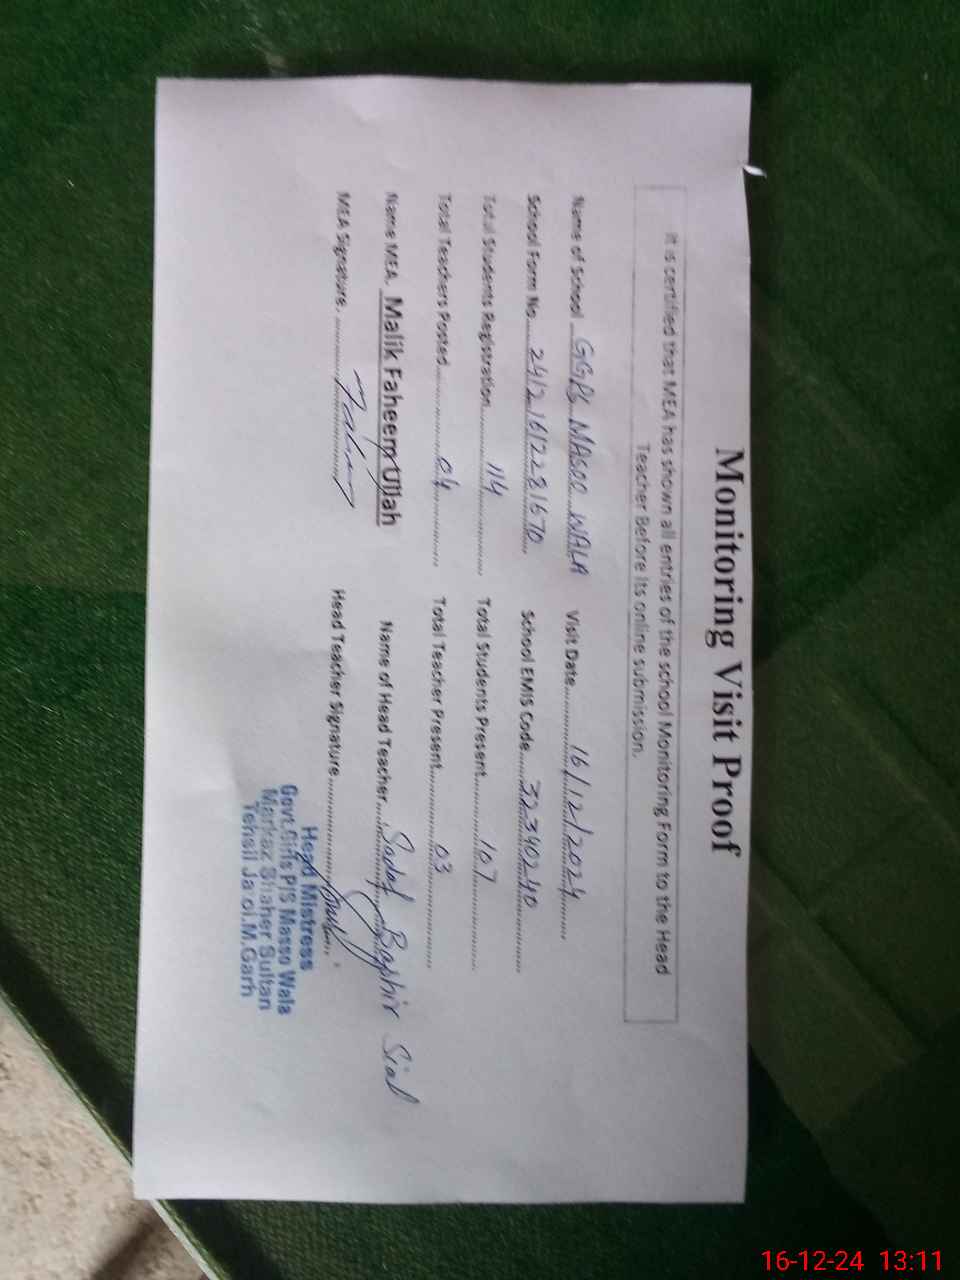 Monitoring Visit Proof
It is certified that MEA has shown all entries of the school Monitoring Form to the Head
Teacher Before its online submission.
Name of School GGPS MASOO WALA Visit Date 16/12/2024
School Form No 24121612281670 School EMIS Code 32340240
Total Students Registration 114 Total Students Present 107
Total Teachers Posted 04 Total Teacher Present 03
Name MEA. Malik Faheem Ullah Name of Head Teacher Sadaf Sial
MEA Signature. Head Teacher Signature
Head Mistress
Govt.Girls P/S Masso Wala
Markaz Shaher Sultan
Tehsil Jatoi.M.Garh
16-12-24 13:11